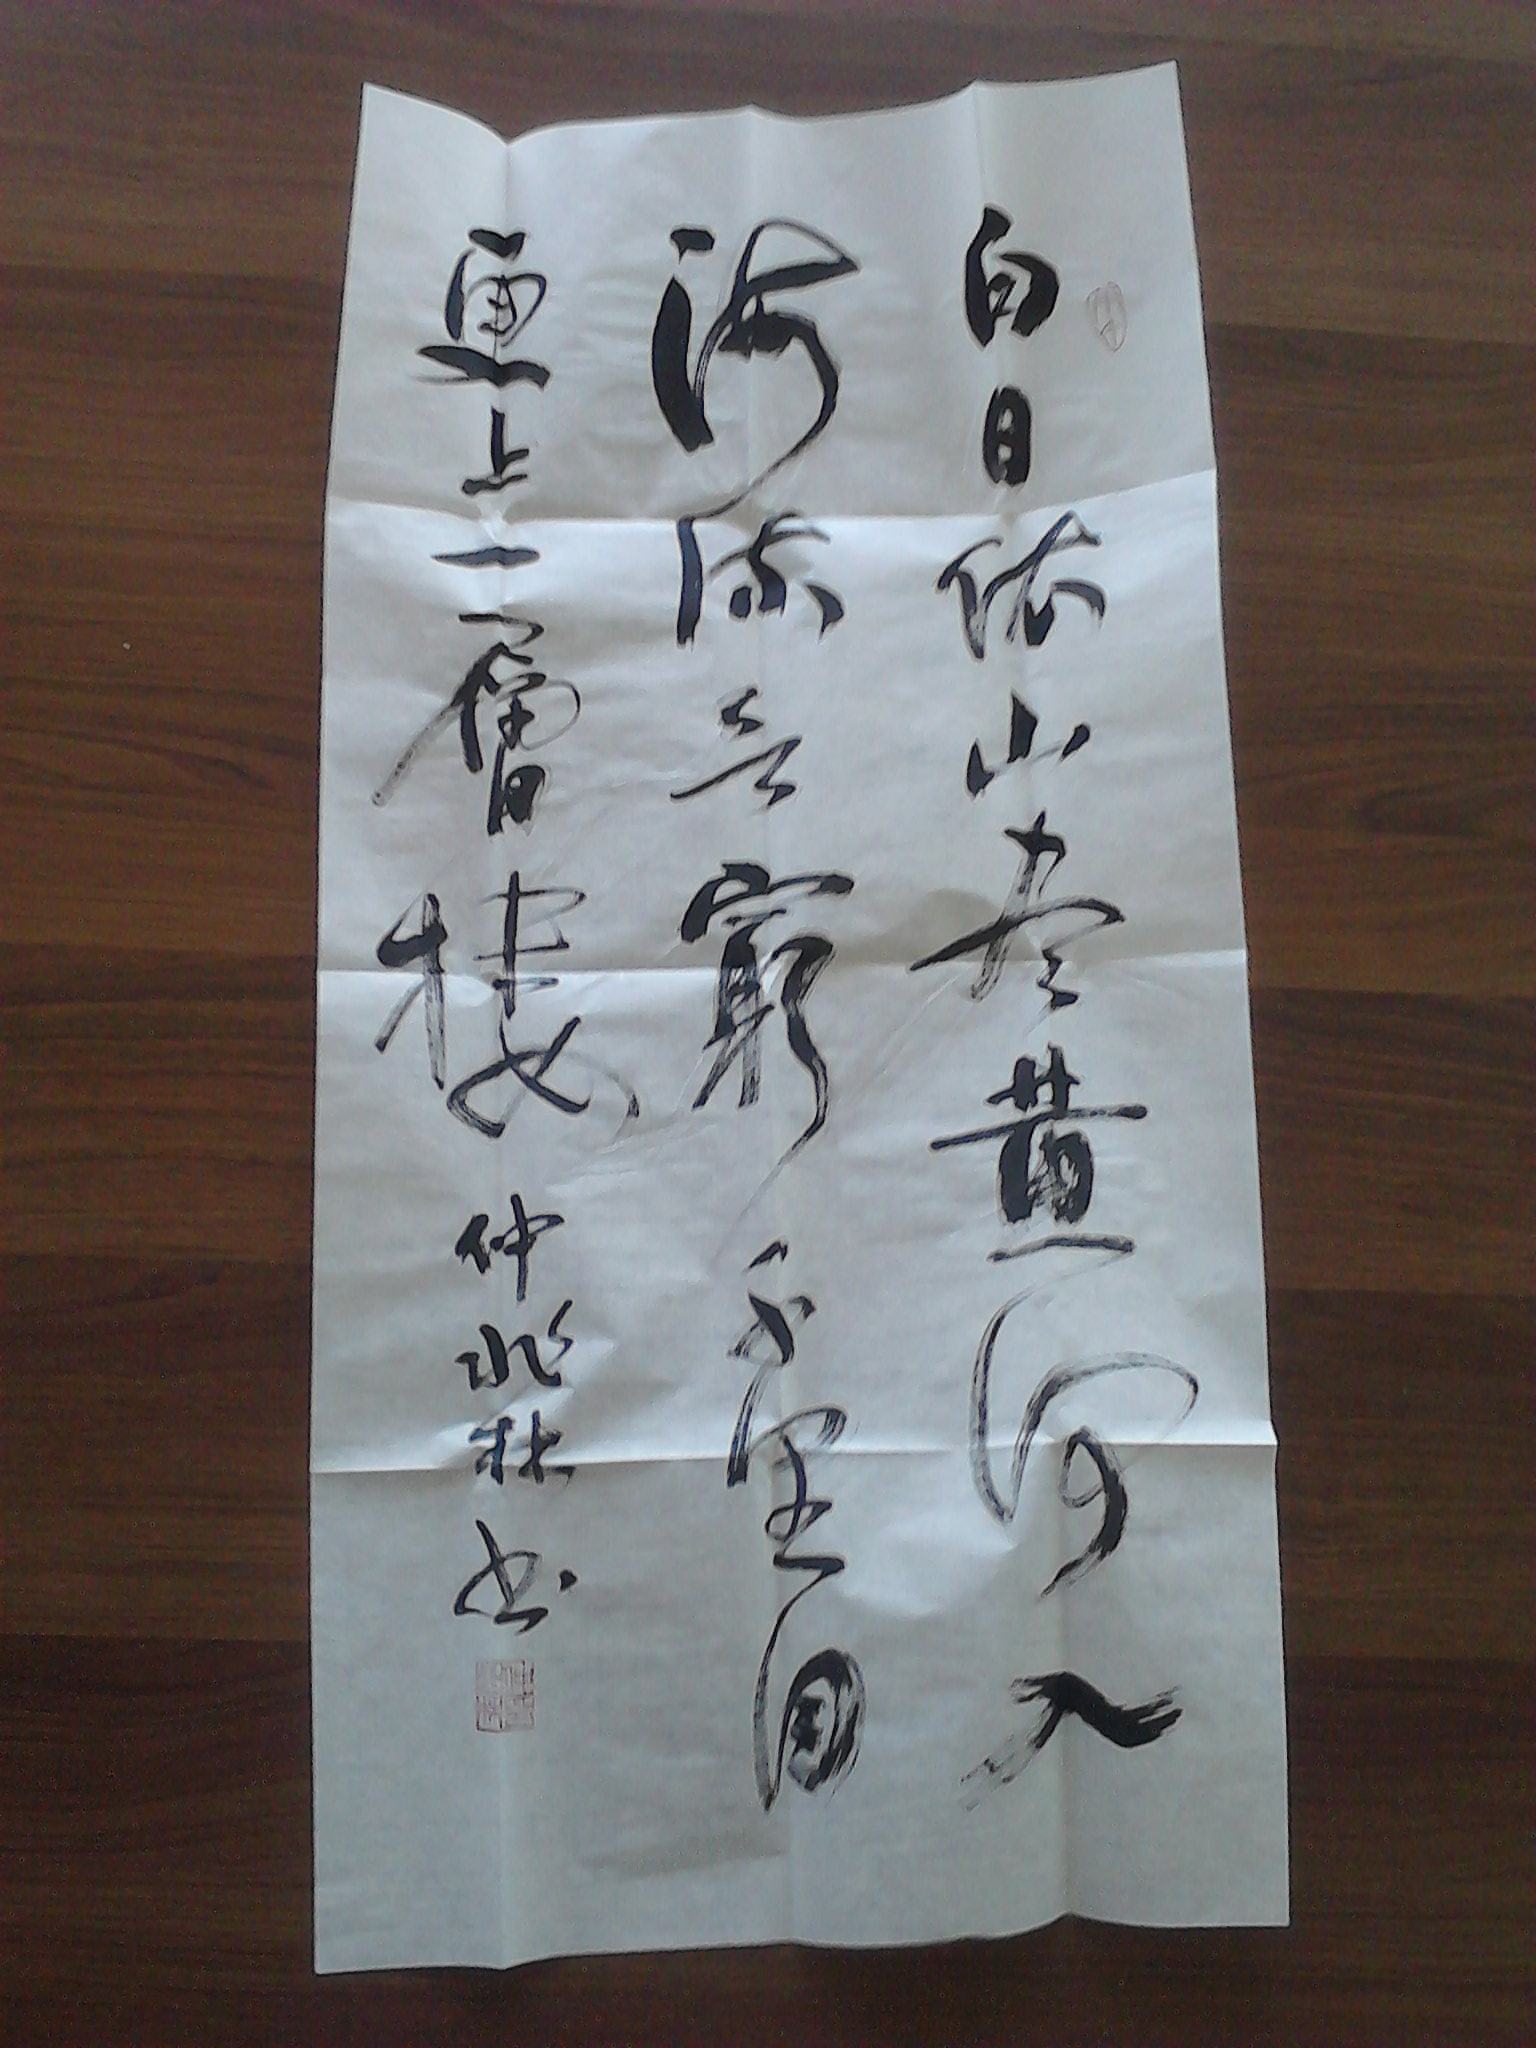 白日依山尽黄河入
海流欲窮千里目
更上一層樓 仲兆林书